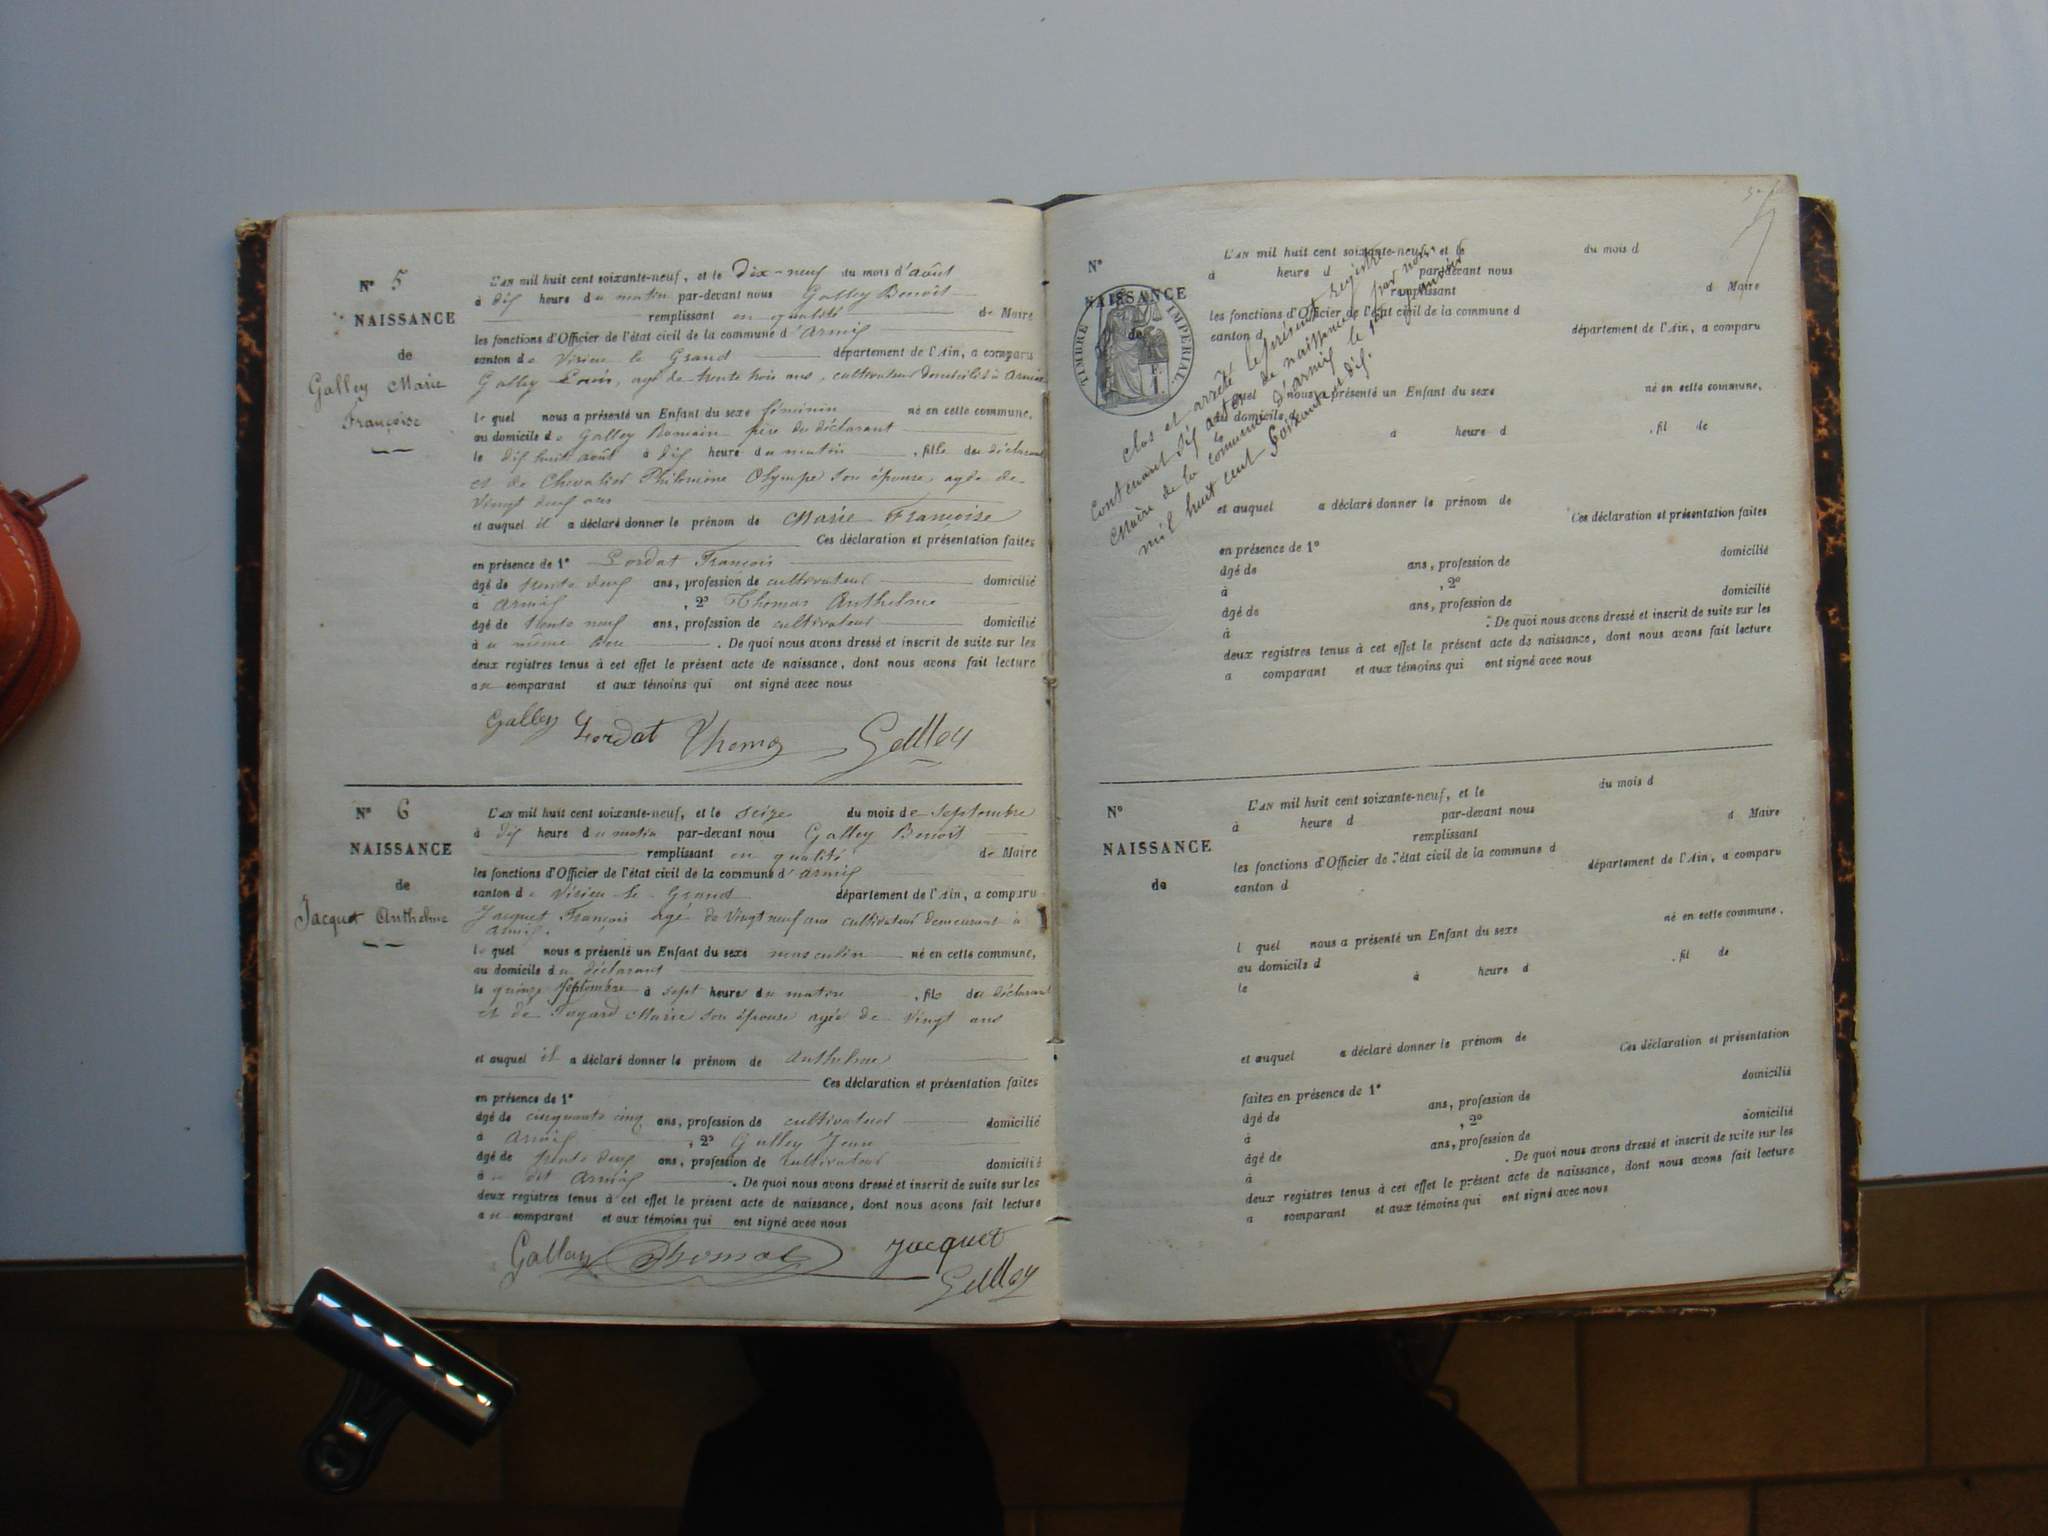 N° 5
NAISSANCE
de
Galley Marie
Françoise
L'AN mil huit cent soixante-neuf, et le Dix-neuf du mois d'août
à dix heure du matin par-devant nous Galley Benoit
remplissant en qualité de Maire
les fonctions d'Officier de l'état civil de la commune d'Armix
canton de Virieu le Grand département de l'Ain, a comparu
Galley Louis, agé de trente trois ans, cultivateur domicilié à Armix
lequel nous a présenté un Enfant du sexe féminin né en cette commune,
au domicile de Galley Romain père du déclarant
le dix huit août à dix heure du matin , fille du déclarant
et de Chevalier Philomène Olympe son épouse agée de
vingt deux ans
et auquel il a déclaré donner le prénom de Marie Françoise
Ces déclaration et présentation faites
en présence de 1° Lordat François
âgé de trente deux ans, profession de cultivateur domicilié
à Armix , 2° Thomas Anthelme
âgé de trente neuf ans, profession de cultivateur domicilié
au même lieu . De quoi nous avons dressé et inscrit de suite sur les
deux registres tenus à cet effet le présent acte de naissance, dont nous avons fait lecture
au comparant et aux témoins qui ont signé avec nous
Galley Lordat Thomas Galley
N° 6
NAISSANCE
de
Jacquet Anthelme
L'AN mil huit cent soixante-neuf, et le seize du mois de septembre
à dix heure du matin par-devant nous Galley Benoit
remplissant en qualité de Maire
les fonctions d'Officier de l'état civil de la commune d'Armix
canton de Virieu-le-Grand département de l'Ain, a comparu
Jacquet François agé de vingt neuf ans cultivateur demeurant à
Armix.
lequel nous a présenté un Enfant du sexe masculin né en cette commune,
au domicile du déclarant
le quinze septembre à sept heures du matin , fils du déclarant
et de Marie son épouse agée de vingt ans
et auquel il a déclaré donner le prénom de Anthelme
Ces déclaration et présentation faites
en présence de 1°
âgé de cinquante cinq ans, profession de cultivateur domicilié
à Armix , 2° Galley Jean
âgé de trente deux ans, profession de cultivateur domicilié
au dit Armix . De quoi nous avons dressé et inscrit de suite sur les
deux registres tenus à cet effet le présent acte de naissance, dont nous avons fait lecture
au comparant et aux témoins qui ont signé avec nous
Galley Thomas Jacquet
Galley
N°
NAISSANCE
de
TIMBRE IMPÉRIAL
clos et arrêté le présent registre
contenant six actes de naissance par nous
Maire de la commune d'Armix le premier janvier
mil huit cent soixante et dix.
L'AN mil huit cent soixante-neuf, et le du mois d
à heure d par-devant nous
remplissant d Maire
les fonctions d'Officier de l'état civil de la commune d
canton d département de l'Ain, a comparu
l quel nous a présenté un Enfant du sexe né en cette commune,
au domicile d
à heure d , fil de
et auquel a déclaré donner le prénom de
Ces déclaration et présentation faites
en présence de 1°
âgé de ans, profession de domicilié
à , 2°
âgé de ans, profession de domicilié
à . De quoi nous avons dressé et inscrit de suite sur les
deux registres tenus à cet effet le présent acte de naissance, dont nous avons fait lecture
a comparant et aux témoins qui ont signé avec nous
N°
NAISSANCE
de
L'AN mil huit cent soixante-neuf, et le du mois d
à heure d par-devant nous
remplissant d Maire
les fonctions d'Officier de l'état civil de la commune d
canton d département de l'Ain, a comparu
l quel nous a présenté un Enfant du sexe né en cette commune,
au domicile d
le à heure d , fil de
et auquel a déclaré donner le prénom de
Ces déclaration et présentation
faites en présence de 1° domicilié
âgé de ans, profession de
à , 2° domicilié
âgé de ans, profession de
à . De quoi nous avons dressé et inscrit de suite sur les
deux registres tenus à cet effet le présent acte de naissance, dont nous avons fait lecture
a comparant et aux témoins qui ont signé avec nous